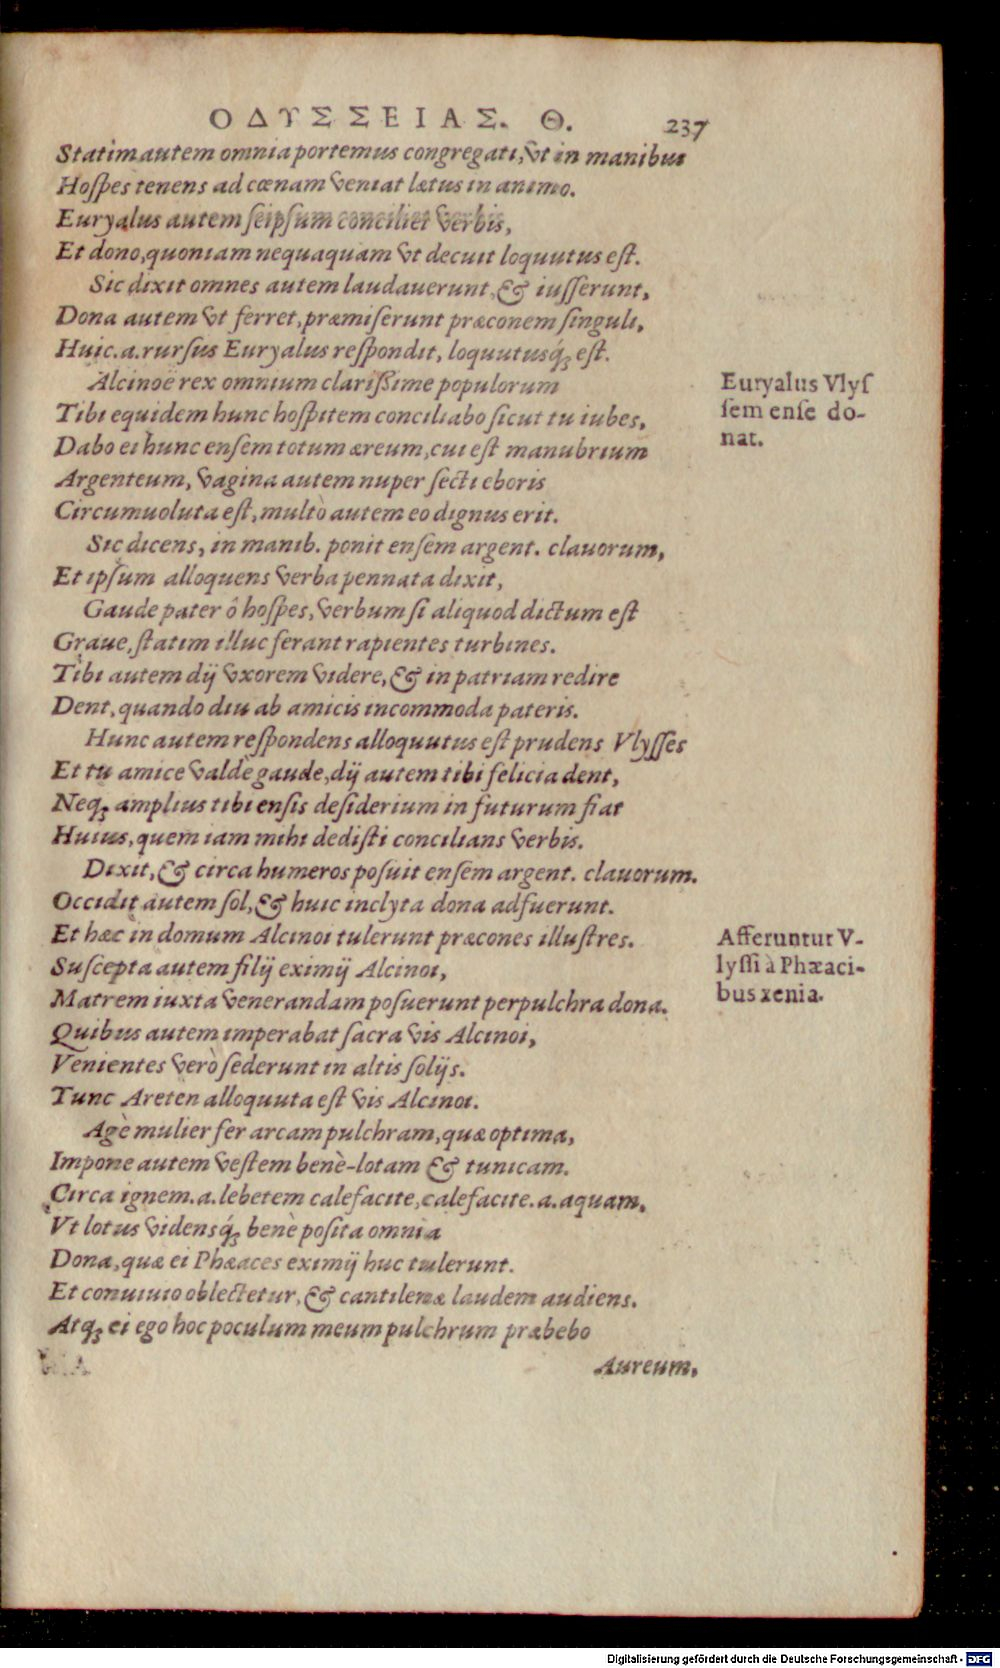 ΟΔΥΣΣΕΙΑΣ. Θ. 237
Statim autem omnia portemus congregati, vt in manibus
Hoſpes tenens ad cœnam veniat lætus in animo.
Euryalus autem ſeipſum conciliet verbis,
Et dono, quoniam nequaquam vt decuit loquutus eſt.
Sic dixit omnes autem laudauerunt, & iuſſerunt,
Dona autem vt ferret, præmiſerunt præconem ſinguli,
Huic.a.rurſus Euryalus reſpondit, loquutusq́; eſt.
Alcinoë rex omnium clariſſime populorum
Tibi equidem hunc hoſpitem conciliabo ſicut tu iubes,
Dabo ei hunc enſem totum æreum, cui eſt manubrium
Argenteum, vagina autem nuper ſecti eboris
Circumuoluta eſt, multò autem eo dignus erit.
Sic dicens, in manib. ponit enſem argent. clauorum,
Et ipſum alloquens verba pennata dixit,
Gaude pater ô hoſpes, verbum ſi aliquod dictum eſt
Graue, ſtatim illuc ferant rapientes turbines.
Tibi autem dij vxorem videre, & in patriam redire
Dent, quando diu ab amicis incommoda pateris.
Hunc autem reſpondens alloquutus eſt prudens Vlyſſes
Et tu amice valde gaude, dij autem tibi felicia dent,
Neq; amplius tibi enſis deſiderium in futurum fiat
Huius, quem iam mihi dediſti concilians verbis.
Dixit, & circa humeros poſuit enſem argent. clauorum.
Occidit autem ſol, & huic inclyta dona adfuerunt.
Et hæc in domum Alcinoi tulerunt præcones illuſtres.
Suſcepta autem filij eximij Alcinoi,
Matrem iuxta venerandam poſuerunt perpulchra dona.
Quibus autem imperabat ſacra vis Alcinoi,
Venientes verò ſederunt in altis ſolijs.
Tunc Areten alloquuta eſt vis Alcinoi.
Agè mulier fer arcam pulchram, quæ optima,
Impone autem veſtem benè-lotam & tunicam.
Circa ignem.a.lebetem calefacite, calefacite.a.aquam,
Vt lotus vidensq́; benè poſita omnia
Dona, quæ ei Phæaces eximij huc tulerunt.
Et conuiuio oblectetur, & cantilenæ laudem audiens.
Atq; ei ego hoc poculum meum pulchrum præbebo
Aureum,
Euryalus Vlyſ
ſem enſe do-
nat.
Afferuntur V-
lyſſi à Phæaci-
bus xenia.
Digitalisierung gefördert durch die Deutsche Forschungsgemeinschaft - DFG